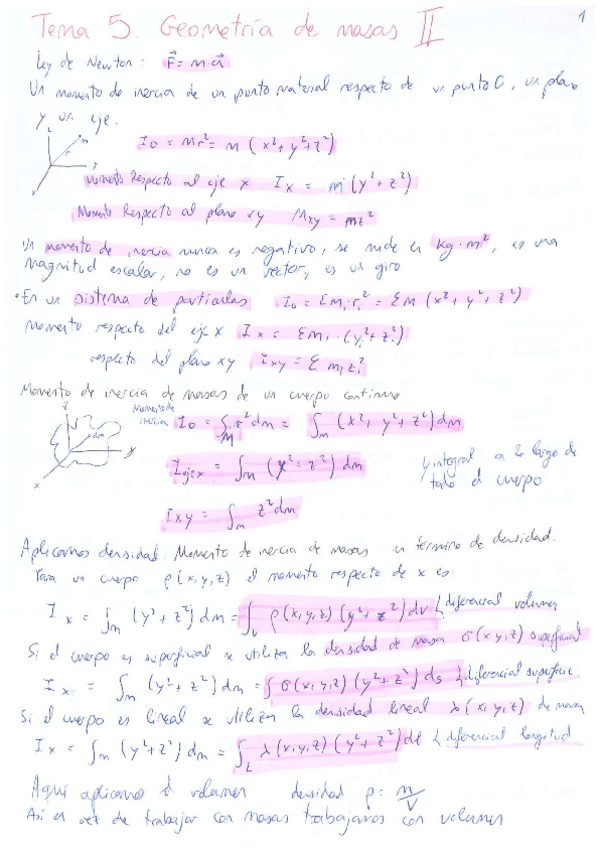 Tema 5. Geometría de masas II
1
Ley de Newton: F = m·a
Un momento de inercia de un punto material respecto de un punto O, un plano
y un eje.
I₀ = mr² = m (x²+y²+z²)
Momento Respecto al eje x Iₓ = m (y²+z²)
Momento Respecto al plano xy Mxy = mz²
Un momento de inercia nunca es negativo, se mide en kg·m², es una
magnitud escalar, no es un vector, es un giro
• En un sistema de particulas I₀ = Σmᵢ·rᵢ² = Σm (x²+y²+z²)
momento respecto del eje x Iₓ = Σmᵢ·(yᵢ²+zᵢ²)
respecto del plano xy Ixy = Σ mᵢ zᵢ²
Momento de inercia de masas de un cuerpo continuo
Momento de
inercia I₀ = ∫m r² dm = ∫m (x²+y²+z²) dm
Iejex = ∫m (y²+z²) dm
y integral a lo largo de
todo el cuerpo
Ixy = ∫m z² dm
Aplicamos densidad. Momento de inercia de masas en término de densidad.
Para un cuerpo ρ(x,y,z) el momento respecto de x es:
Iₓ = ∫m (y²+z²) dm = ∫v ρ(x,y,z) (y²+z²) dv diferencial volumen
Si el cuerpo es superficial se utiliza la densidad de masa σ(x,y,z) superficial
Iₓ = ∫m (y²+z²) dm = ∫ σ(x,y,z) (y²+z²) ds diferencial superficie
Si el cuerpo es lineal se utiliza la densidad lineal λ(x,y,z) de masa
Iₓ = ∫m (y²+z²) dm = ∫L λ(x,y,z) (y²+z²) dl diferencial longitud
Aqui aplicamos el volumen densidad ρ: m/V
Asi en vez de trabajar con masas trabajamos con volumen